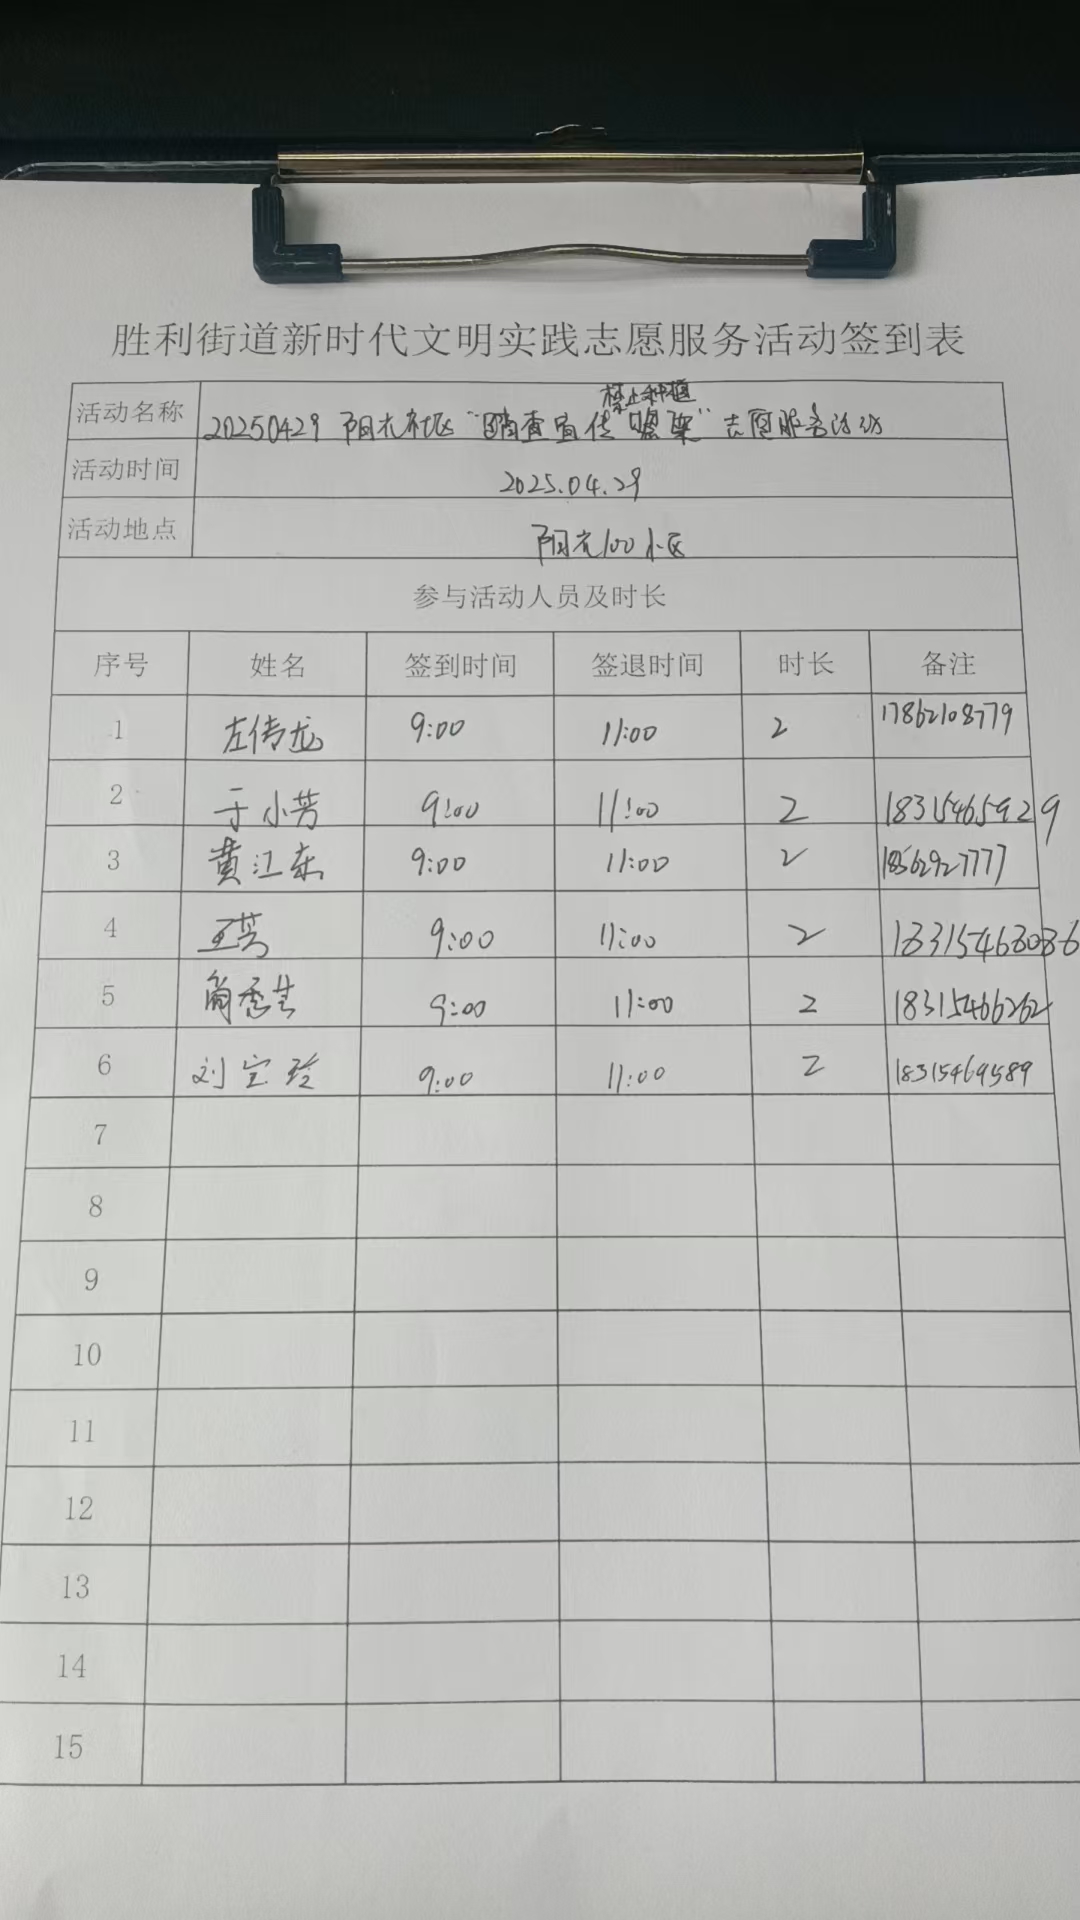 胜利街道新时代文明实践志愿服务活动签到表
禁止种植
活动名称 20250429 阳光社区“踏查宣传罂粟”志愿服务活动
活动时间 2025.04.29
活动地点 阳光100小区
参与活动人员及时长
序号 姓名 签到时间 签退时间 时长 备注
1 左传龙 9:00 11:00 2 17862108779
2 于小芳 9:00 11:00 2 18315465929
3 黄江东 9:00 11:00 2 18562927777
4 王芳 9:00 11:00 2
5 9:00 11:00 2 18315466262
6 刘宝玲 9:00 11:00 2 18315469589
7
8
9
10
11
12
13
14
15